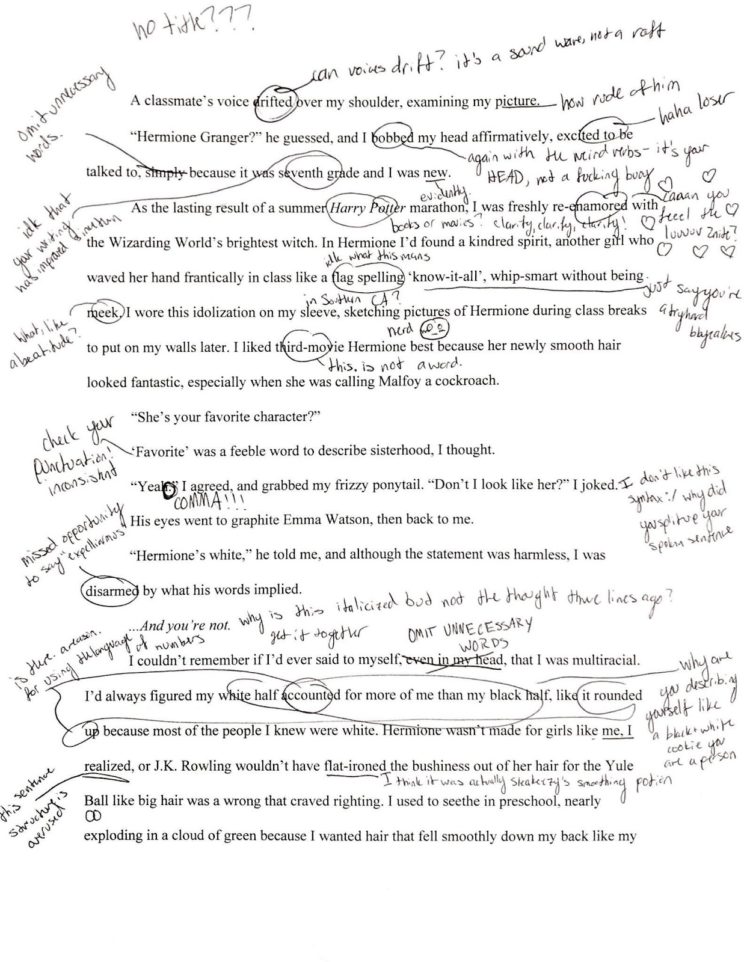 no title???
can voices drift? it's a sound wave, not a raft
omit unnecessary words.
A classmate's voice drifted over my shoulder, examining my picture.
how rude of him
haha loser
"Hermione Granger?" he guessed, and I bobbed my head affirmatively, excited to be
again with the weird verbs - it's your HEAD, not a fucking buoy
talked to, simply because it was seventh grade and I was new.
evidently.
idk that your writing has improved since then
As the lasting result of a summer Harry Potter marathon, I was freshly re-enamored with
books or movies? clarify, clarify, clarify!
caaan you feel the luvvvv 2nite?
the Wizarding World's brightest witch. In Hermione I'd found a kindred spirit, another girl who
idk what this means
waved her hand frantically in class like a flag spelling 'know-it-all', whip-smart without being
just say you're a tryhard
in Southern CA?
what, like a beatitude?
meek. I wore this idolization on my sleeve, sketching pictures of Hermione during class breaks
nerd
to put on my walls later. I liked third-movie Hermione best because her newly smooth hair
this is not a word.
looked fantastic, especially when she was calling Malfoy a cockroach.
"She's your favorite character?"
check your punctuation! inconsistent
'Favorite' was a feeble word to describe sisterhood, I thought.
"Yeah." I agreed, and grabbed my frizzy ponytail. "Don't I look like her?" I joked.
COMMA!!!
I don't like this syntax :/ why did you split up your spoken sentence
His eyes went to graphite Emma Watson, then back to me.
missed opportunity to say "expelliarmus
"Hermione's white," he told me, and although the statement was harmless, I was
disarmed by what his words implied.
...And you're not.
why is this italicized but not the thought three lines ago? get it together
is there a reason for using the language of numbers
OMIT UNNECESSARY WORDS
I couldn't remember if I'd ever said to myself, even in my head, that I was multiracial.
why are you describing yourself like a black + white cookie you are a person
I'd always figured my white half accounted for more of me than my black half, like it rounded
up because most of the people I knew were white. Hermione wasn't made for girls like me, I
realized, or J.K. Rowling wouldn't have flat-ironed the bushiness out of her hair for the Yule
I think it was actually Sleakeazy's smoothing potion
this sentence structure is overused
Ball like big hair was a wrong that craved righting. I used to seethe in preschool, nearly
exploding in a cloud of green because I wanted hair that fell smoothly down my back like my